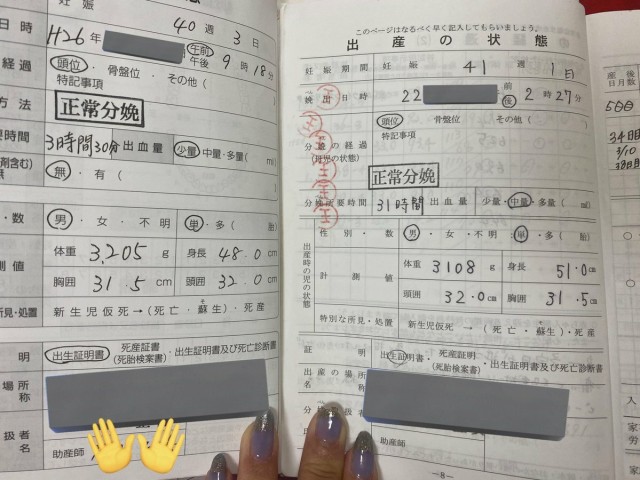 妊娠 40週 3日
日時 H26年 午前 午後 9時18分
経過 頭位・骨盤位・その他(
特記事項
方法 正常分娩
要時間 3時間30分 出血量 少量・中量・多量( ml)
剤含む) 無・有(
・数 男・女・不明 単・多( 胎)
測値 体重 3,205g 身長 48.0cm
胸囲 31.5cm 頭囲 32.0cm
所見・処置 新生児仮死→(死亡・蘇生)・死産
明 出生証明書・死産証書(死胎検案書)・出生証明書及び死亡診断書
場所
称
扱者
名
助産師
このページはなるべく早く記入してもらいましょう。
出産の状態
妊娠期間 妊娠 41週 1日
娩出日時 22 午前 後 2時27分
分娩の経過 (母児の状態) 頭位・骨盤位・その他( )
特記事項
正常分娩
分娩所要時間 31時間 出血量 少量・中量・多量( ml)
出産時の児の状態
性別・数 男・女・不明 単・多( 胎)
計測値 体重 3108g 身長 51.0cm
頭囲 32.0cm 胸囲 31.5cm
特別な所見・処置 新生児仮死→(死亡・蘇生)・死産
証明 出生証明書・死産証明(死胎検案書)・出生証明書及び死亡診断書
出産の場所
名称
助産師
-8-
産後
日月数
5日目
34日
3/10
38日目